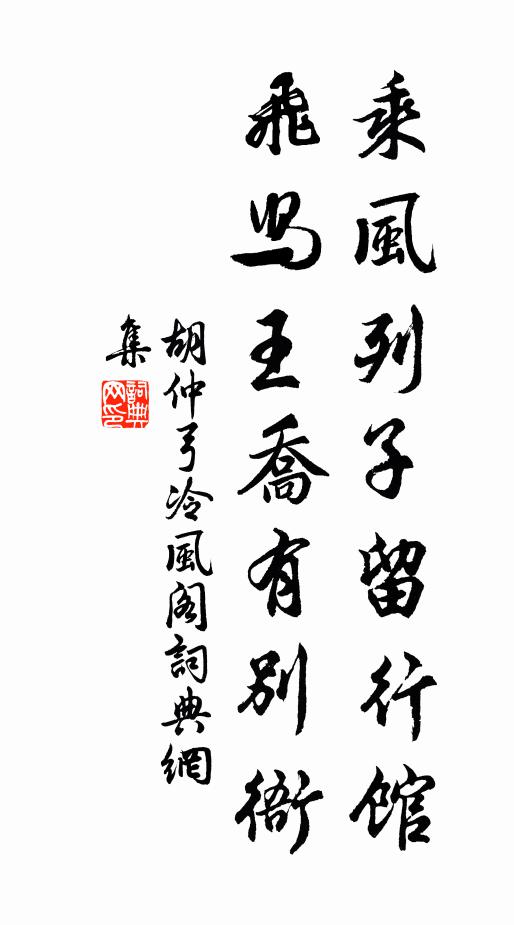 乘風列子留行馆
飛舄王喬有別衙
胡仲弓冷風阁詞典網
集
詞典
网印